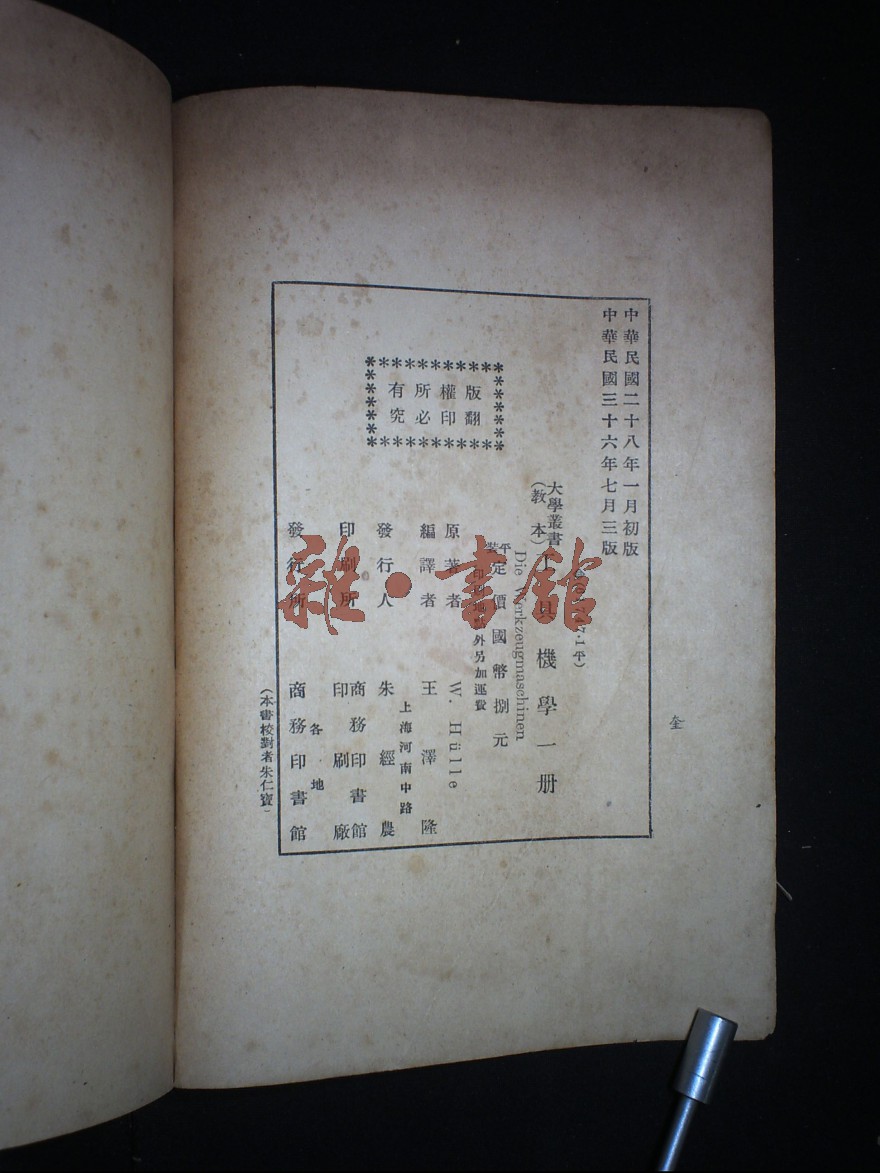 中華民國二十八年一月初版
中華民國三十六年七月三版
大學叢書
(教本)
工具機學一册
Die Werkzeugmaschinen
平裝
定價國幣捌元
外另加運費
原著者 W. Hülle
編譯者 王澤隆
上海河南中路
發行人 朱經農
印刷所 商務印書館
印刷廠
各地
發行所 商務印書館
版權所有
翻印必究
(本書校對者朱仁寶)
仝
雜·書館